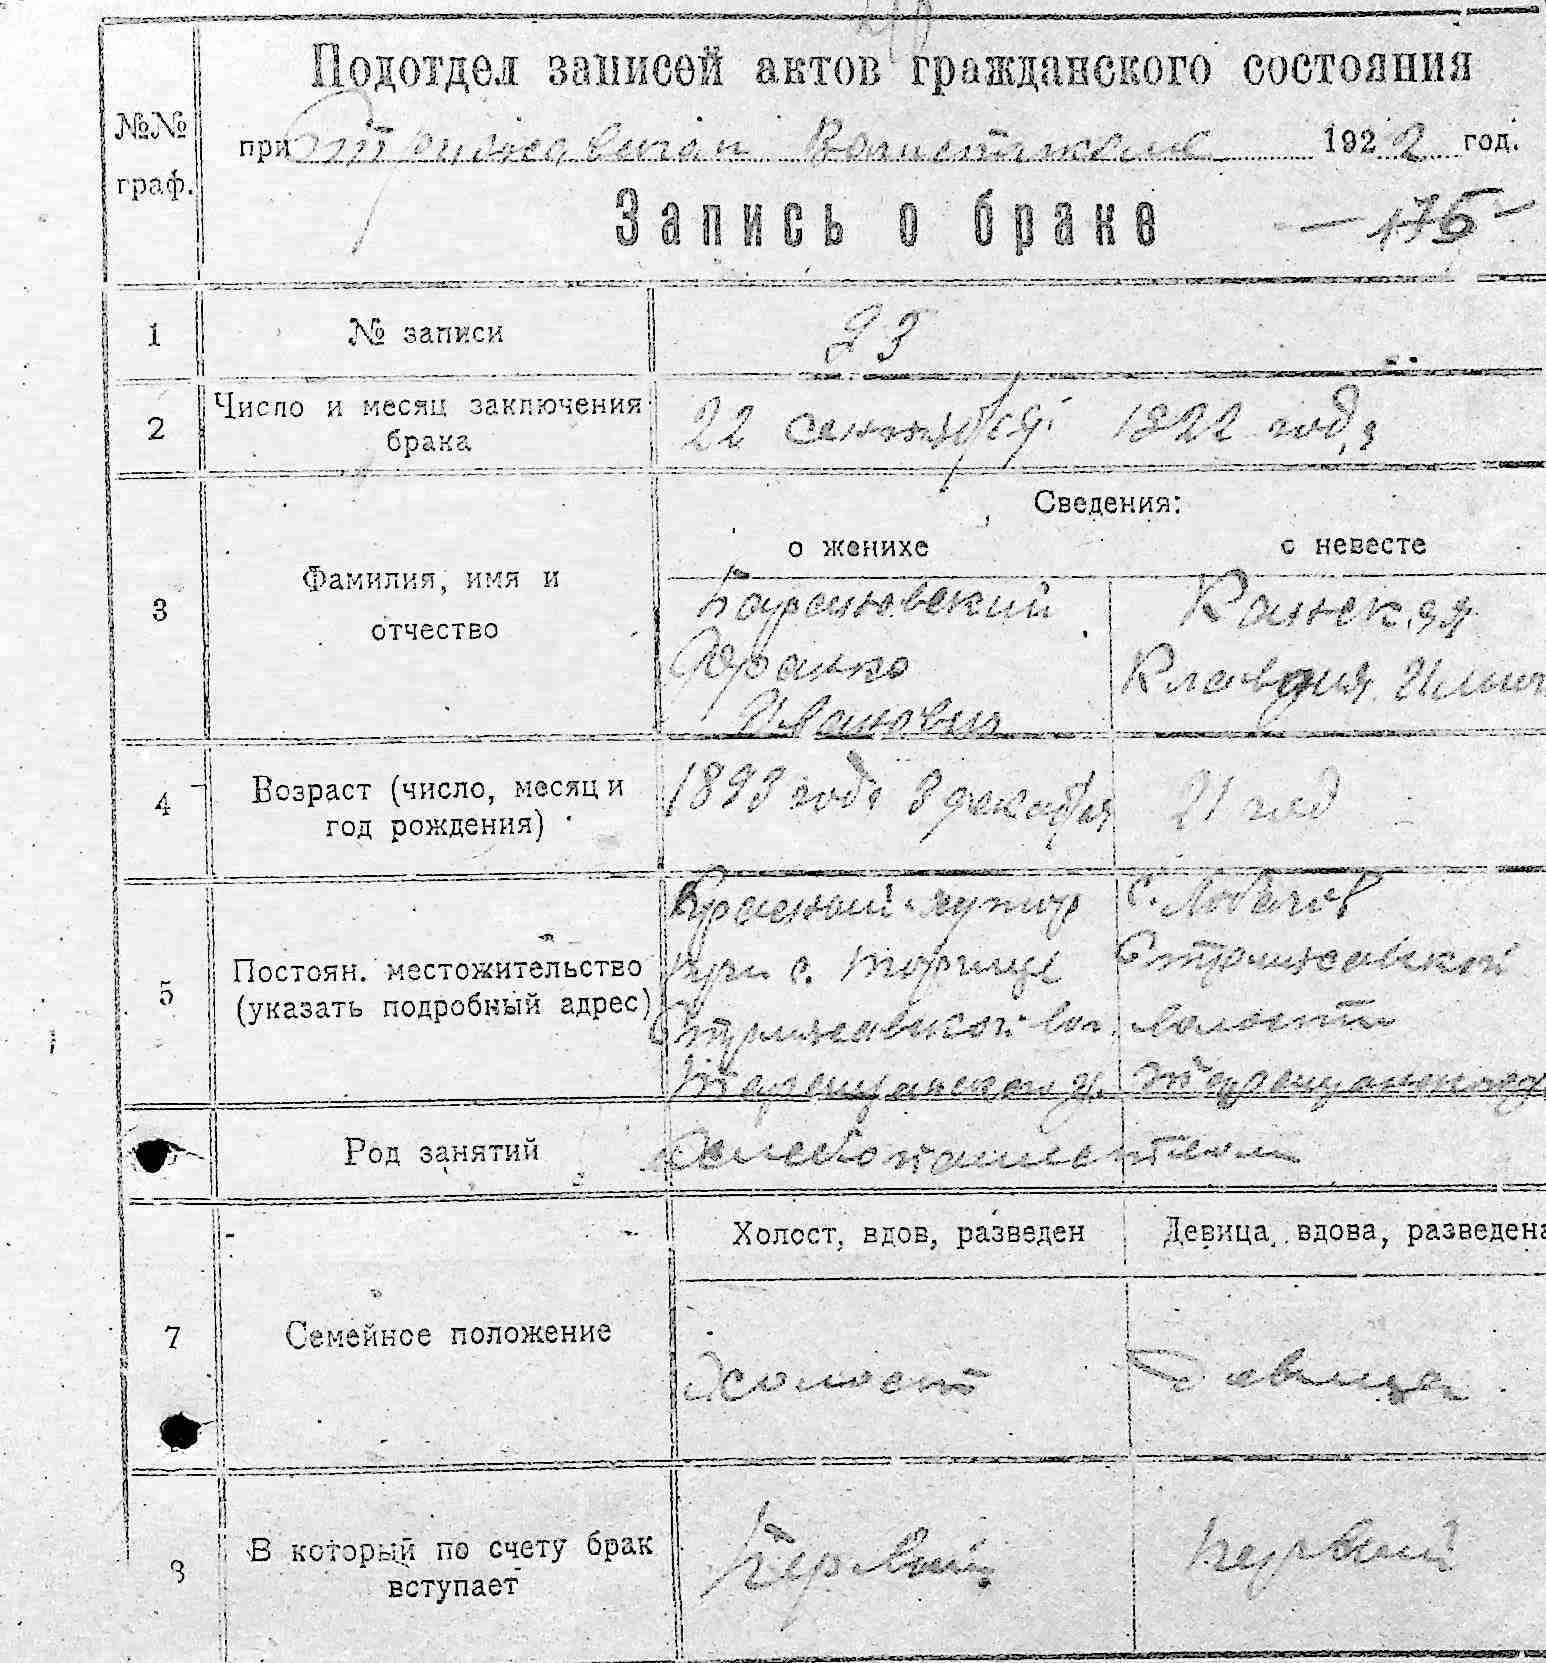 №№ граф.
Подотдел записей актов гражданского состояния
при Стрижавском Волисполкоме 1922 год.
Запись о браке
— 175 —
1
№ записи
25
2
Число и месяц заключения
брака
22 сентября 1822 года
Сведения:
о женихе
о невесте
3
Фамилия, имя и
отчество
Иванович
Канская
Клавдия
4
Возраст (число, месяц и
год рождения)
1893 года 8 декабря
21 год
5
Постоян. местожительство
(указать подробный адрес)
Красный хутор
при с.
Стрижавской вол.
Таращанского у.
С. Лобачев
Стрижавской
волости
Таращанского у
Род занятий
хлебопашеством
7
Семейное положение
Холост, вдов, разведен
Девица, вдова, разведена
холост
Девица
8
В который по счету брак
вступает
Первий
первий